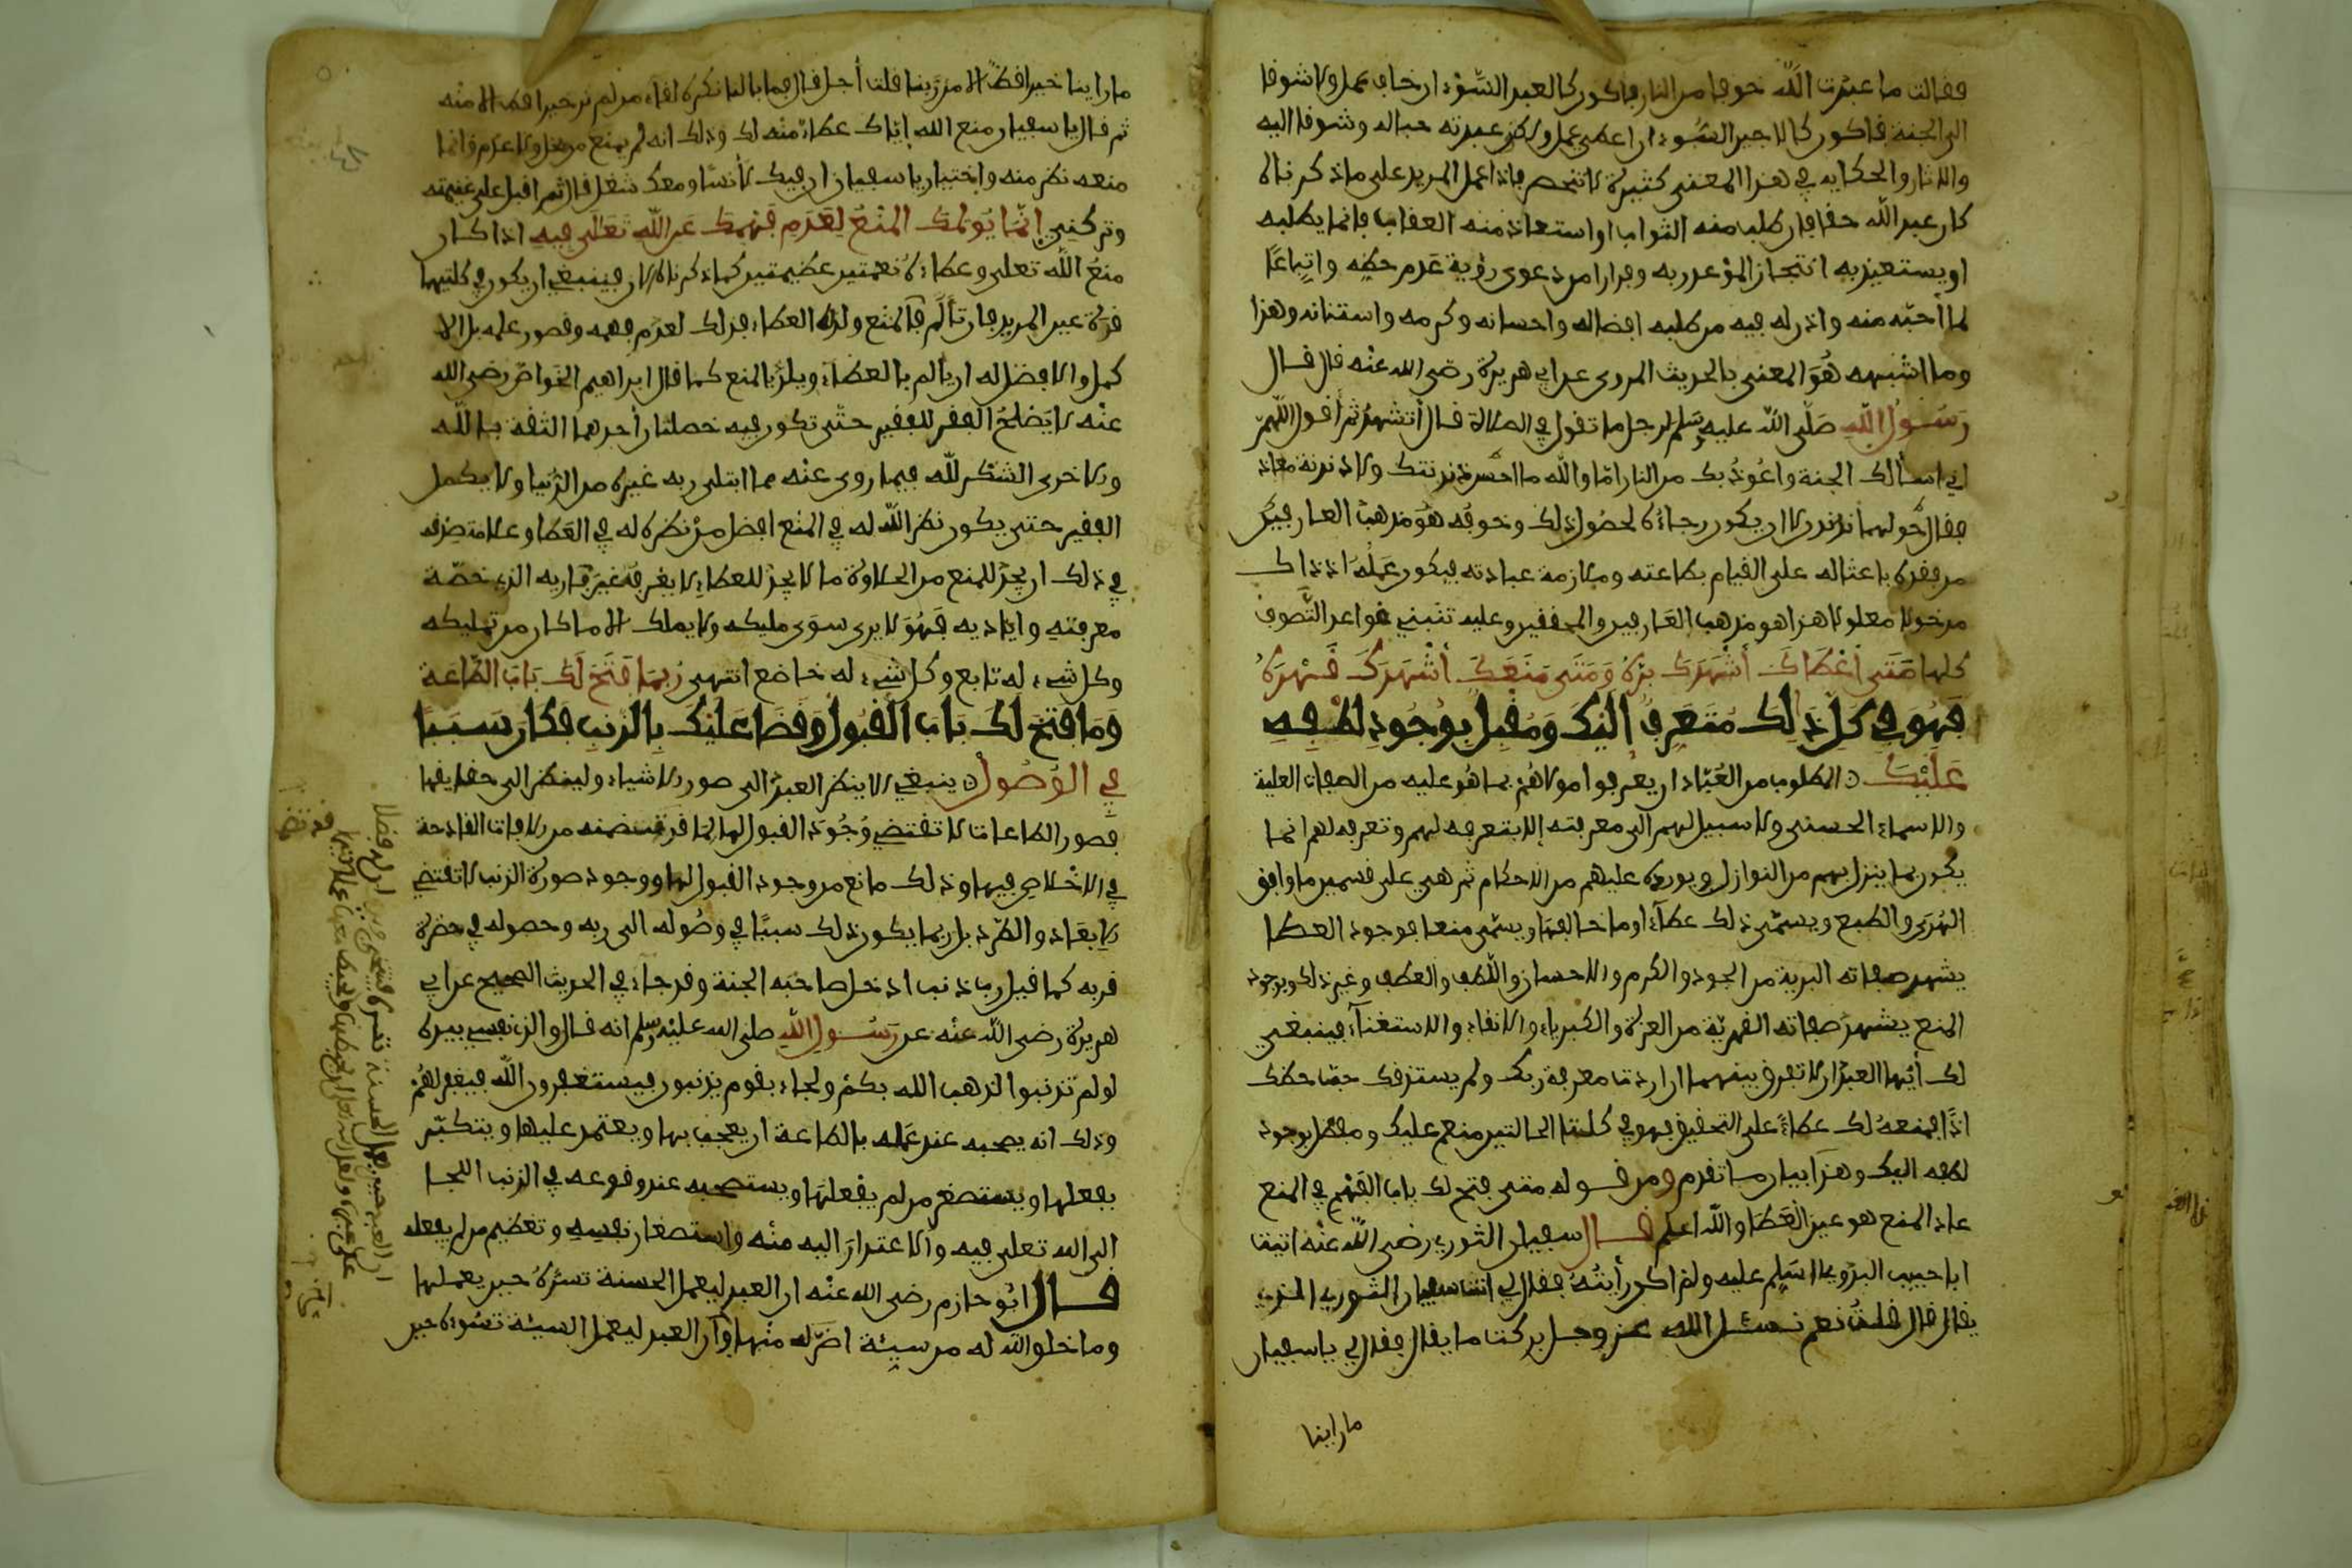 فقالت ما عبدت الله خوفا من النار فاكون كالعبد السوء ان خاف عمل ولا شوقا
الى الجنة فاكون كالاجير السوء ان اعطي عمل ولكن عبدته حبا له وشوقا اليه
والاثار والحكاية في هذا المعنى كثيرة لا تنحصر فاذا عمل المريد على ما ذكرناه
كان عبد الله حقا فان طلب منه الثواب او استعاذ منه العقاب فانما يطلبه
او يستعيذ به انتجاز الموعد ربه وفرارا من دعوى رؤية عدم حظه واتباعا
لما أحبه منه واذن له فيه من طلبه افضاله واحسانه وكرمه وامتنانه وهذا
وما اشبهه هو المعنى بالحديث المروى عن ابي هريرة رضي الله عنه قال قال
رسول الله صلى الله عليه وسلم لرجل ما تقول في الصلاة قال أتشهد ثم أقول اللهم
اني اسألك الجنة واعوذ بك من النار اما والله ما احسن دندنتك ولا دندنة معاذ
فقال حولهما ندندن لا ان يكون رجاؤه لحصول ذلك وخوفه هو مذهب العارفين
من فقره باعثا له على القيام بطاعته وملازمة عبادته فيكون عمله اذ ذاك
مدخولا معلولا هذا هو مذهب العارفين والمحققين وعليه تنبني قواعد التصوف
كلها متى أعطاك أشهدك بره ومتى منعك أشهدك قهره
فهو في كل ذلك متعرف اليك ومقبل بوجود لطفه
عليك المطلوب من العباد ان يعرفوا مولاهم بما هو عليه من الصفات العلية
والاسماء الحسنى ولا سبيل لهم الى معرفته إلا بتعرفه لهم وتعرفه لهم انما
يكون بما ينزل بهم من النوازل ويورده عليهم من الاحكام ثم هي على قسمين ما وافق
الهوى والطبع ويسمى ذلك عطاء او ما خالفهما ويسمى منعا فوجود العطا
يشهد صفاته البرية من الجود والكرم والاحسان واللطف والعطف وغير ذلك وبوجود
المنع يشهد صفاته القهرية من العزة والكبرياء والانفاء والاستغناء فينبغي
لك أيها العبد ان لا تفرق بينهما ان اردت معرفة ربك ولم يستزفك حبّ حظك
اذا فمنعه لك عطاء على التحقيق فهو في كلتا الحالتين منعم عليك ومفضل بوجود
لطفه اليك وهذا بيان ما تقدم من قوله متى فتح لك باب الفهم في المنع
عاد المنع هو عين العطا والله اعلم قال سفيان الثوري رضي الله عنه اتيت
ابا حبيب البدوي اسلم عليه ولم اكن رأيته فقال لي انت سفيان الثوري الذي
يقال قال قلت نعم نسئل الله عز وجل بركت ما يقال فقال لي يا سفيان
ما راينا
ما راينا خيرا قط الا من ربنا قلت أجل قال فما بالنا نكره لقاء من لم نر خيرا قط الا منه
ثم قال يا سفيان منع الله إياك عطاء منه لك وذلك انه لم يمنع من بخل ولا عدم وانما
منعه نظر منه واختبار يا سفيان ان فيك لأنسا ومعك شغل قال ثم اقبل على غنيمته
وتركني إنما يؤلمك المنع لعدم فهمك عن الله تعلى فيه اذا كان
منع الله تعلى وعطاؤه نعمتين عظيمتين كما ذكرناه الان فينبغي ان يكون في كلتيهما
قرة عين المريد فان تألم بالمنع ولذه العطاء فذلك لعدم فهمه وقصور علمه بل الا
كمل والافضل له ان يألم بالعطاء ويلذ بالمنع كما قال ابراهيم الخواص رضي الله
عنه لا يصلح الفقر للفقير حتى تكون فيه خصلتان أحدهما الثقة بالله
والاخرى الشكر لله فيما روى عنه مما ابتلى به غيره من الدنيا ولا يكمل
الفقير حتى يكون نظر الله له في المنع افضل من نظره له في العطا وعلامة صدقه
في ذلك ان يجد للمنع من الحلاوة ما لا يجد للعطاء لا يعرفه غير باريه الذي خصه
معرفته واياديه فهو لا يرى سوى مليكه ولا يملك الا ما كان من تمليكه
وكل شيء له تابع وكل شيء له خاضع انتهى ربما فتح لك باب الطاعة
وما فتح لك باب القبول وقضا عليك بالذنب فكان سببا
في الوصول ينبغي الا ينظر العبد الى صور الاشياء ولينظر الى حقايقها
فصور الطاعات لا تقتضي وجود القبول لها لما قد تتضمنه من الافات القادحة
في الاخلاص فيها وذلك مانع من وجود القبول لها ووجود صورة الذنب لا تقتضي
الابعاد والطرد بل ربما يكون ذلك سببا في وصوله الى ربه وحصوله في حضرة
قربه كما قيل رب ذنب ادخل صاحبه الجنة وقد جاء في الحديث الصحيح عن ابي
هريرة رضي الله عنه عن رسول الله صلى الله عليه وسلم انه قال والذي نفسي بيده
لو لم تذنبوا لذهب الله بكم ولجاء بقوم يذنبون فيستغفرون الله فيغفر لهم
وذلك انه يصحبه عند عمله بالطاعة ان يعجب بها ويعتمد عليها ويتكبر
بفعلها ويستصغر من لم يفعلها ويستصحبه عند وقوعه في الذنب اللجا
الى الله تعلى فيه والاعتذار اليه منه واستصغار نفسه وتعظيم من لم يفعله
قال ابو حازم رضي الله عنه ان العبد ليعمل الحسنة تسره حين يعملها
وما خلق الله له من سيئة اضر له منها وان العبد ليعمل السيئة تسوءه حين